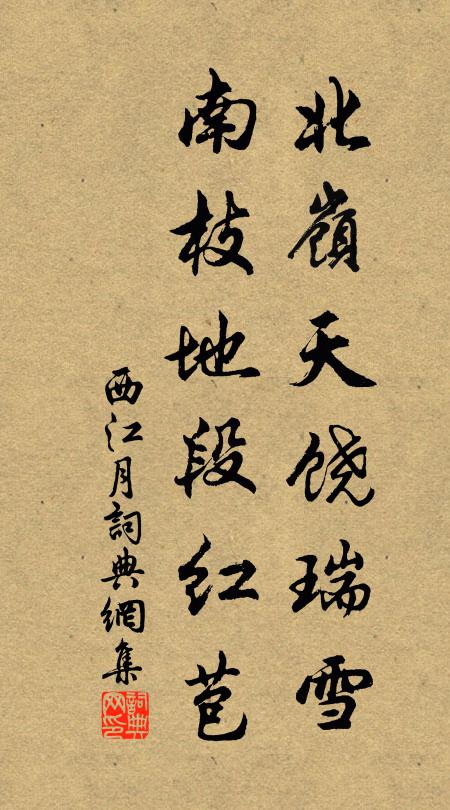 北嶺天饶瑞雪
南枝地段红苞
西江月詞典網集
詞典网印